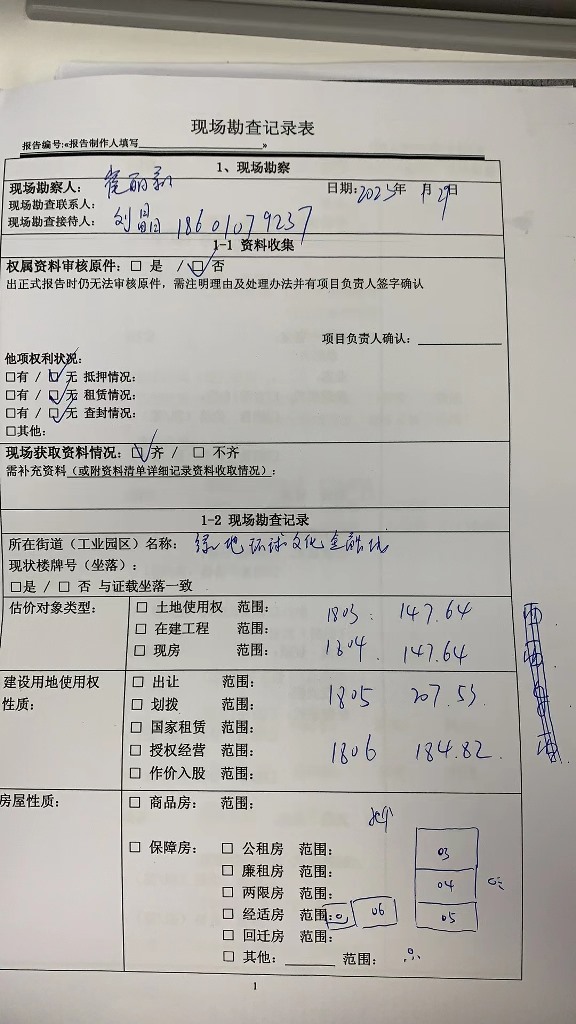 现场勘查记录表
报告编号:«报告制作人填写____________________»
1、现场勘察
现场勘察人: 日期:2023年 月29日
现场勘查联系人:
现场勘查接待人: 刘 18601079237
1-1 资料收集
权属资料审核原件: □ 是 / □ 否
出正式报告时仍无法审核原件, 需注明理由及处理办法并有项目负责人签字确认
项目负责人确认: ____________
他项权利状况:
□有 / □ 无 抵押情况:
□有 / □ 无 租赁情况:
□有 / □ 无 查封情况:
□其他:
现场获取资料情况: □ 齐 / □ 不齐
需补充资料(或附资料清单详细记录资料收取情况):
1-2 现场勘查记录
所在街道(工业园区)名称: 绿地环球文化金融城
现状楼牌号(坐落):
□是 / □ 否 与证载坐落一致
估价对象类型: □ 土地使用权 范围: 1803: 147.64
□ 在建工程 范围:
□ 现房 范围: 1804. 147.64
建设用地使用权性质: □ 出让 范围: 1805 207.53.
□ 划拨 范围:
□ 国家租赁 范围:
□ 授权经营 范围: 1806 184.82.
□ 作价入股 范围:
房屋性质: □ 商品房: 范围:
□ 保障房: □ 公租房 范围: 03
□ 廉租房 范围:
□ 两限房 范围: 04
□ 经适房 范围: 06 05
□ 回迁房 范围:
□ 其他: ______ 范围:
1